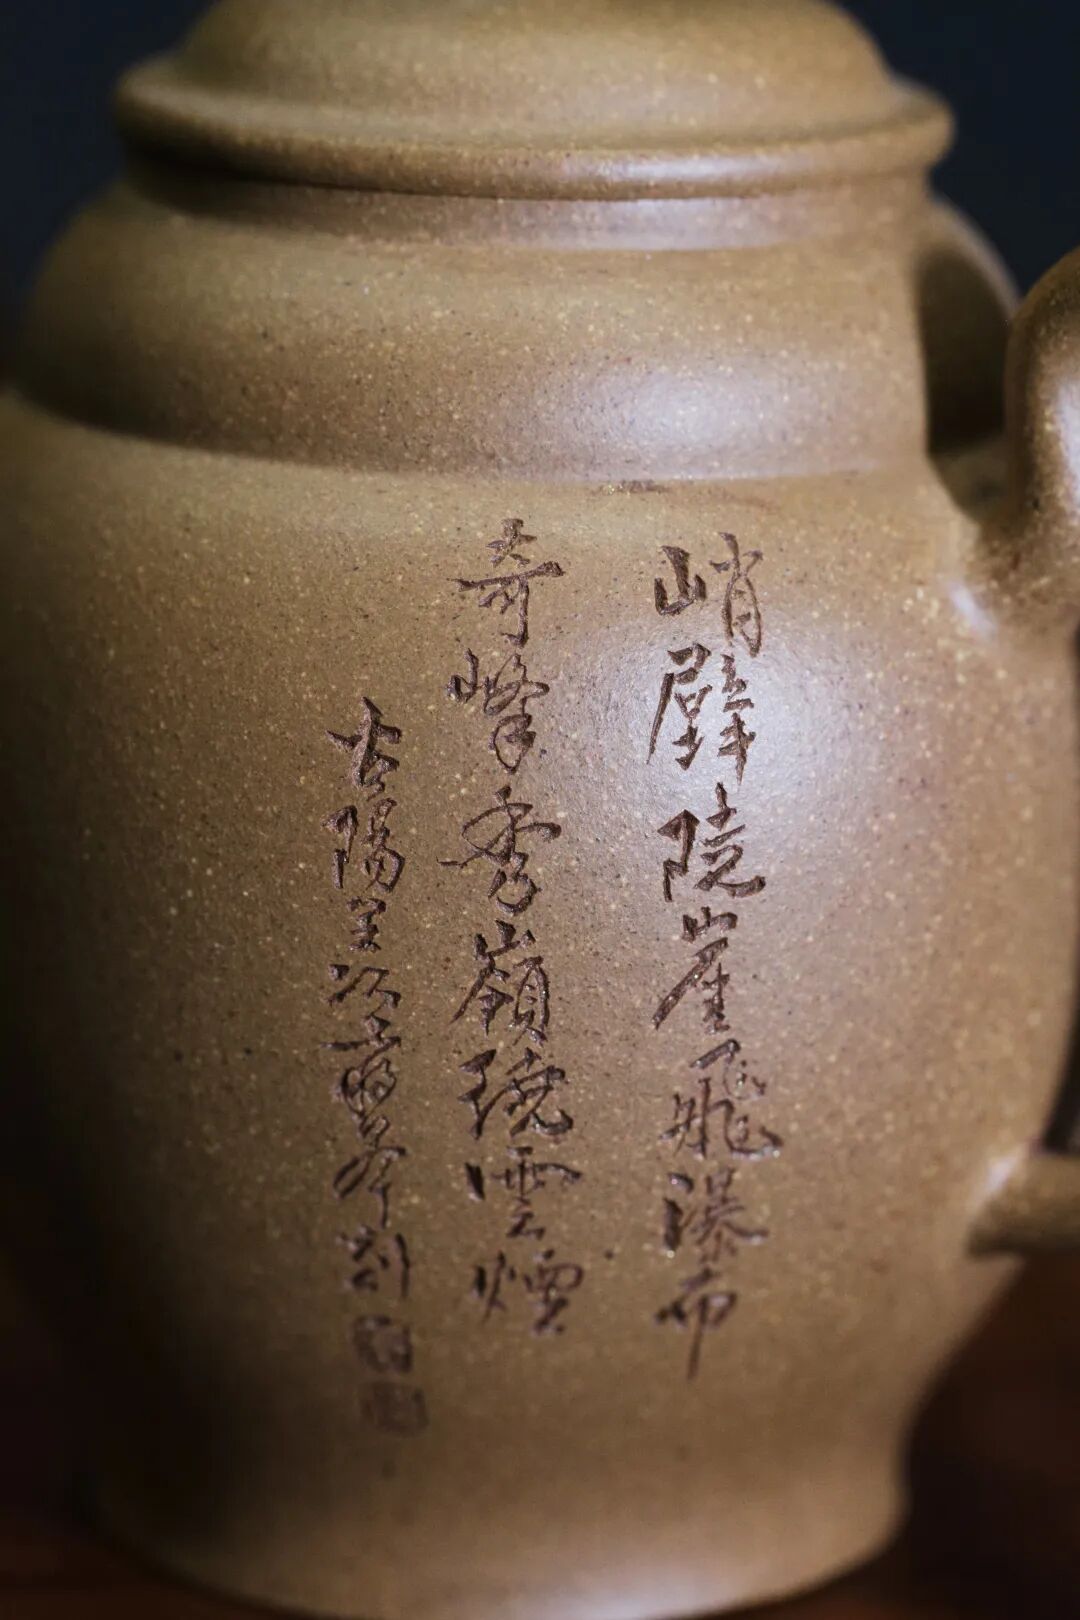 峭壁陡崖飛瀑布
奇峰秀嶺繞雲煙
古陽羨刻